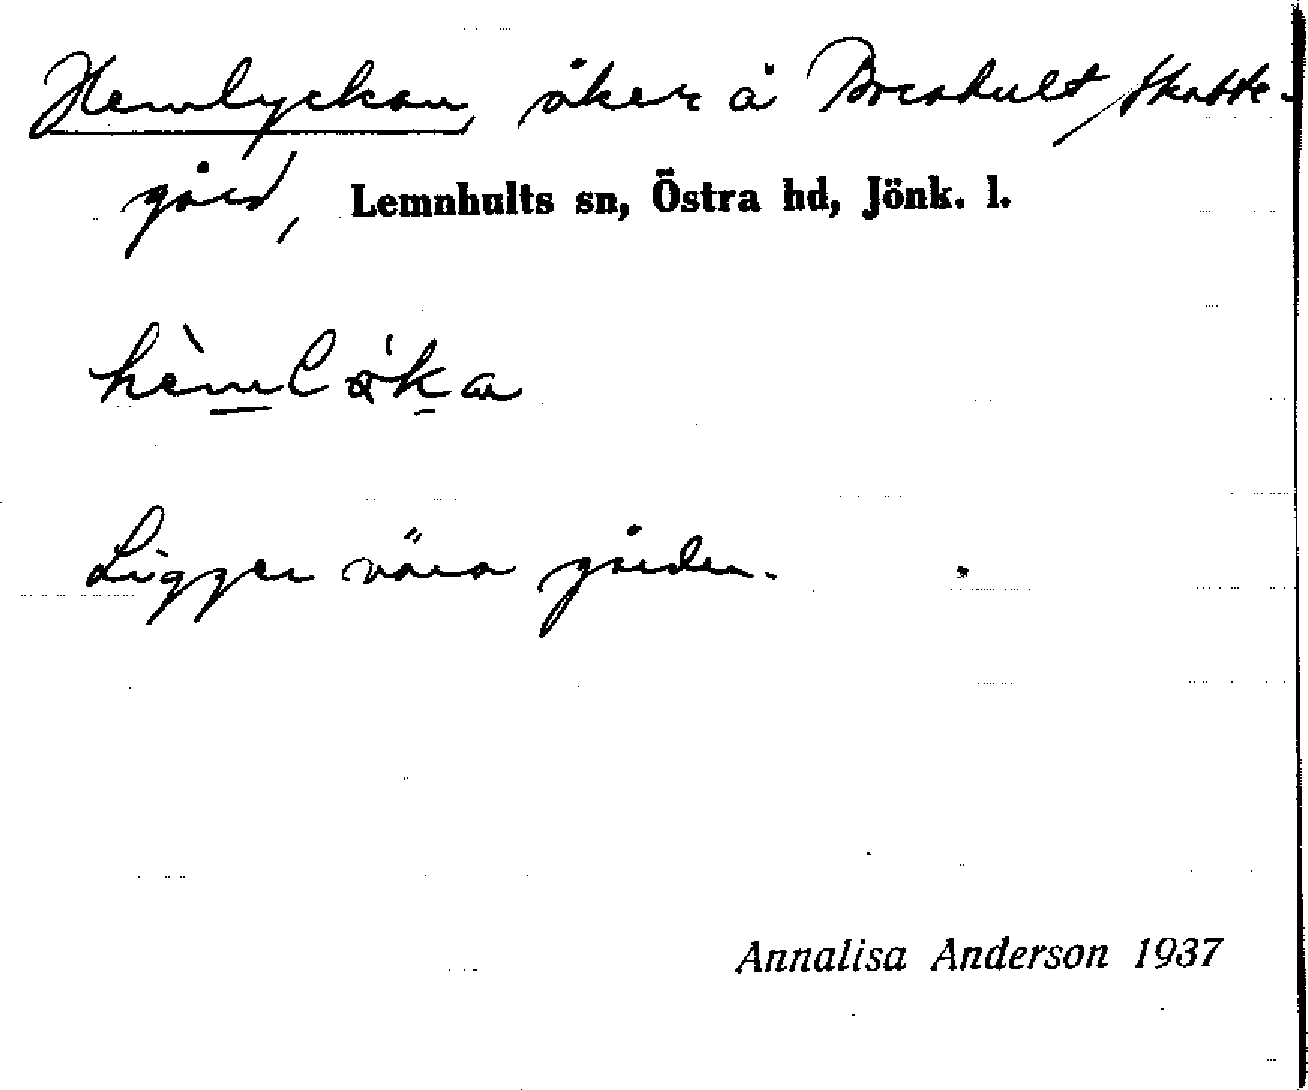 Hemlyckan, åker å Boeahult, Skatte-
gård, Lemnhults sn, Östra hd, Jönk. l.
hèmlǿka
Ligger nära gården.
Annalisa Anderson 1937